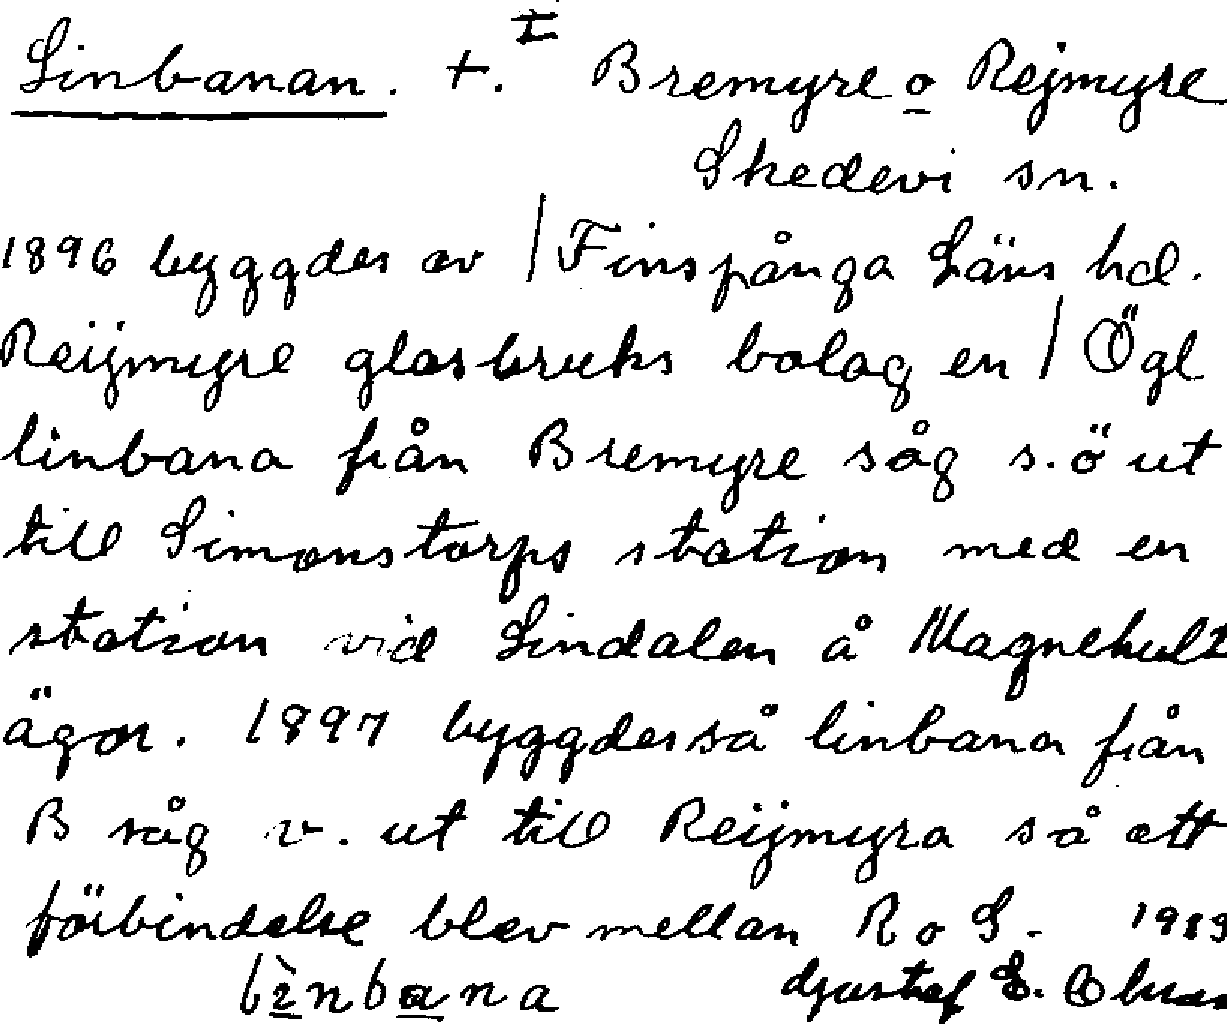 Linbanan. +. I Bremyre o Rejmyre
Skedevi sn.
1896 byggdes av | Finspånga Läns hd.
Reijmyre glasbruks bolag en | Ögl
linbana från Bremyre såg s.ö ut
till Simonstorps station med en
station vid Lindalen å Magnehult
ägor. 1897 byggdes så linbana från
B såg v. ut till Reijmyra så att
förbindelse blev mellan R o S.
lìnbana Gustaf E.